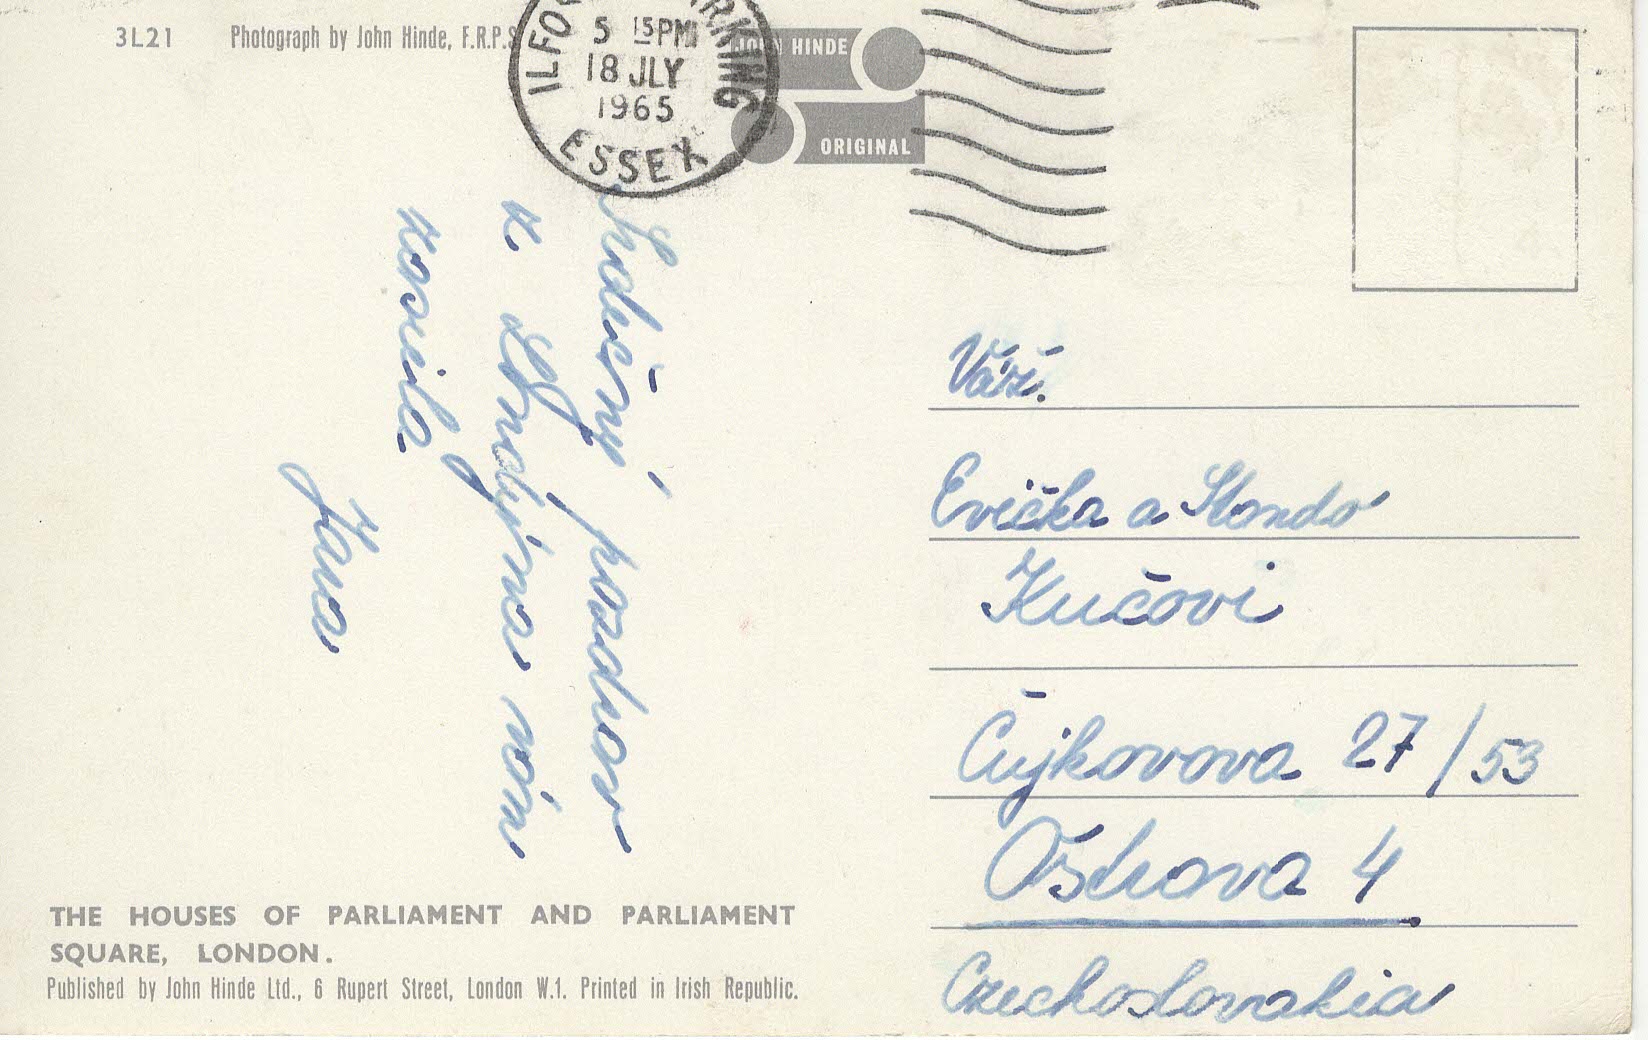 3L21 Photograph by John Hinde, F.R.P.S
5 15PM
18 JLY
1965
ESSEX
JOHN HINDE
ORIGINAL
Srdečný pozdrav
z Londýna vám
posílá
Jana
Váž.
Evička a Standa
Kučovi
Čujkovova 27/53
Ostrava 4
Czechoslovakia
THE HOUSES OF PARLIAMENT AND PARLIAMENT
SQUARE, LONDON.
Published by John Hinde Ltd., 6 Rupert Street, London W.1. Printed in Irish Republic.